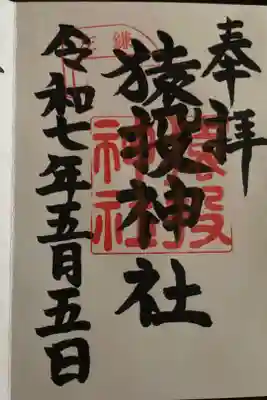 奉拝
猿投神社
猿投
神社
令和七年五月五日